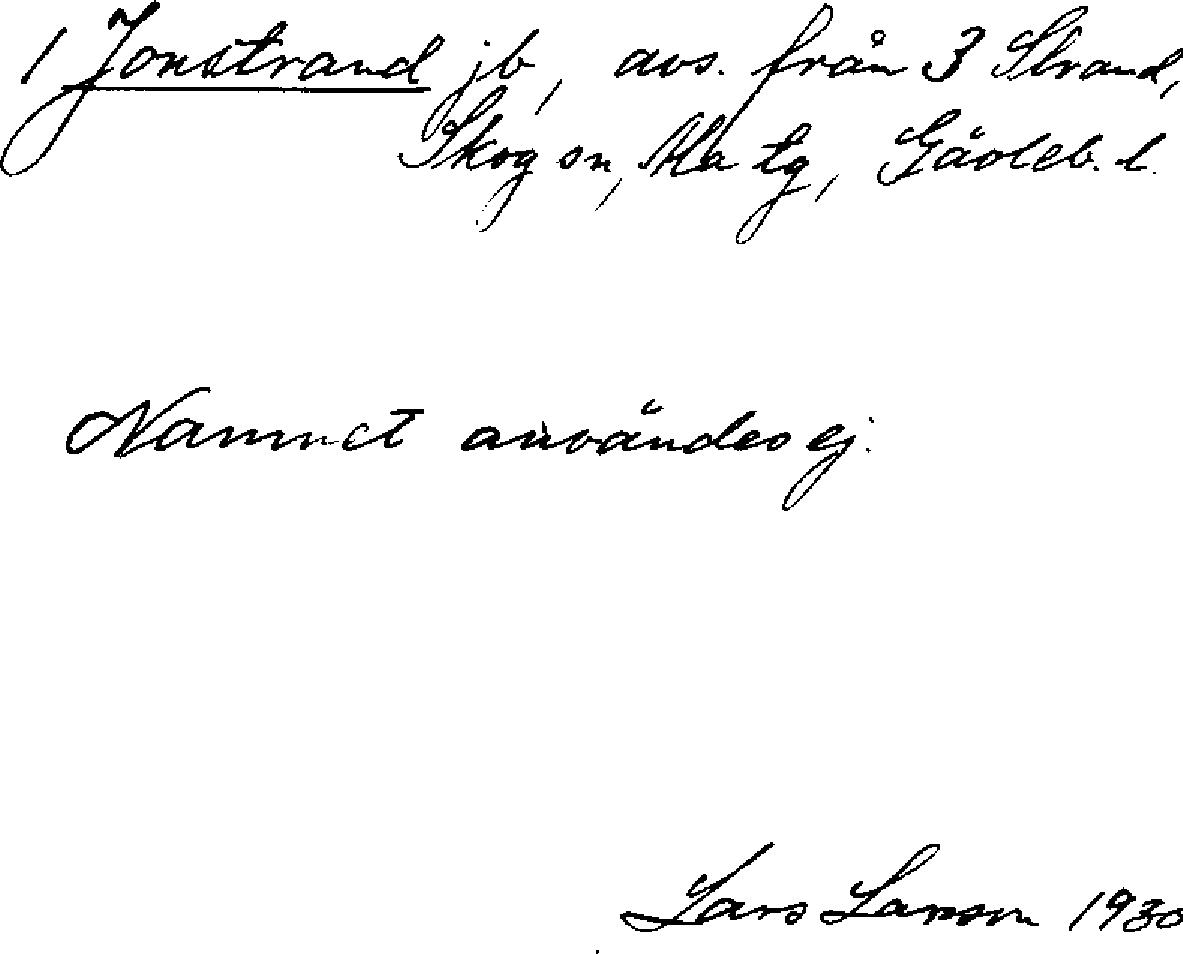 1 Jonstrand jb, avs. från 3 Strand,
Skog sn, Ala tg, Gävleb. l.
Namnet användes ej.
Lars Larsson 1930